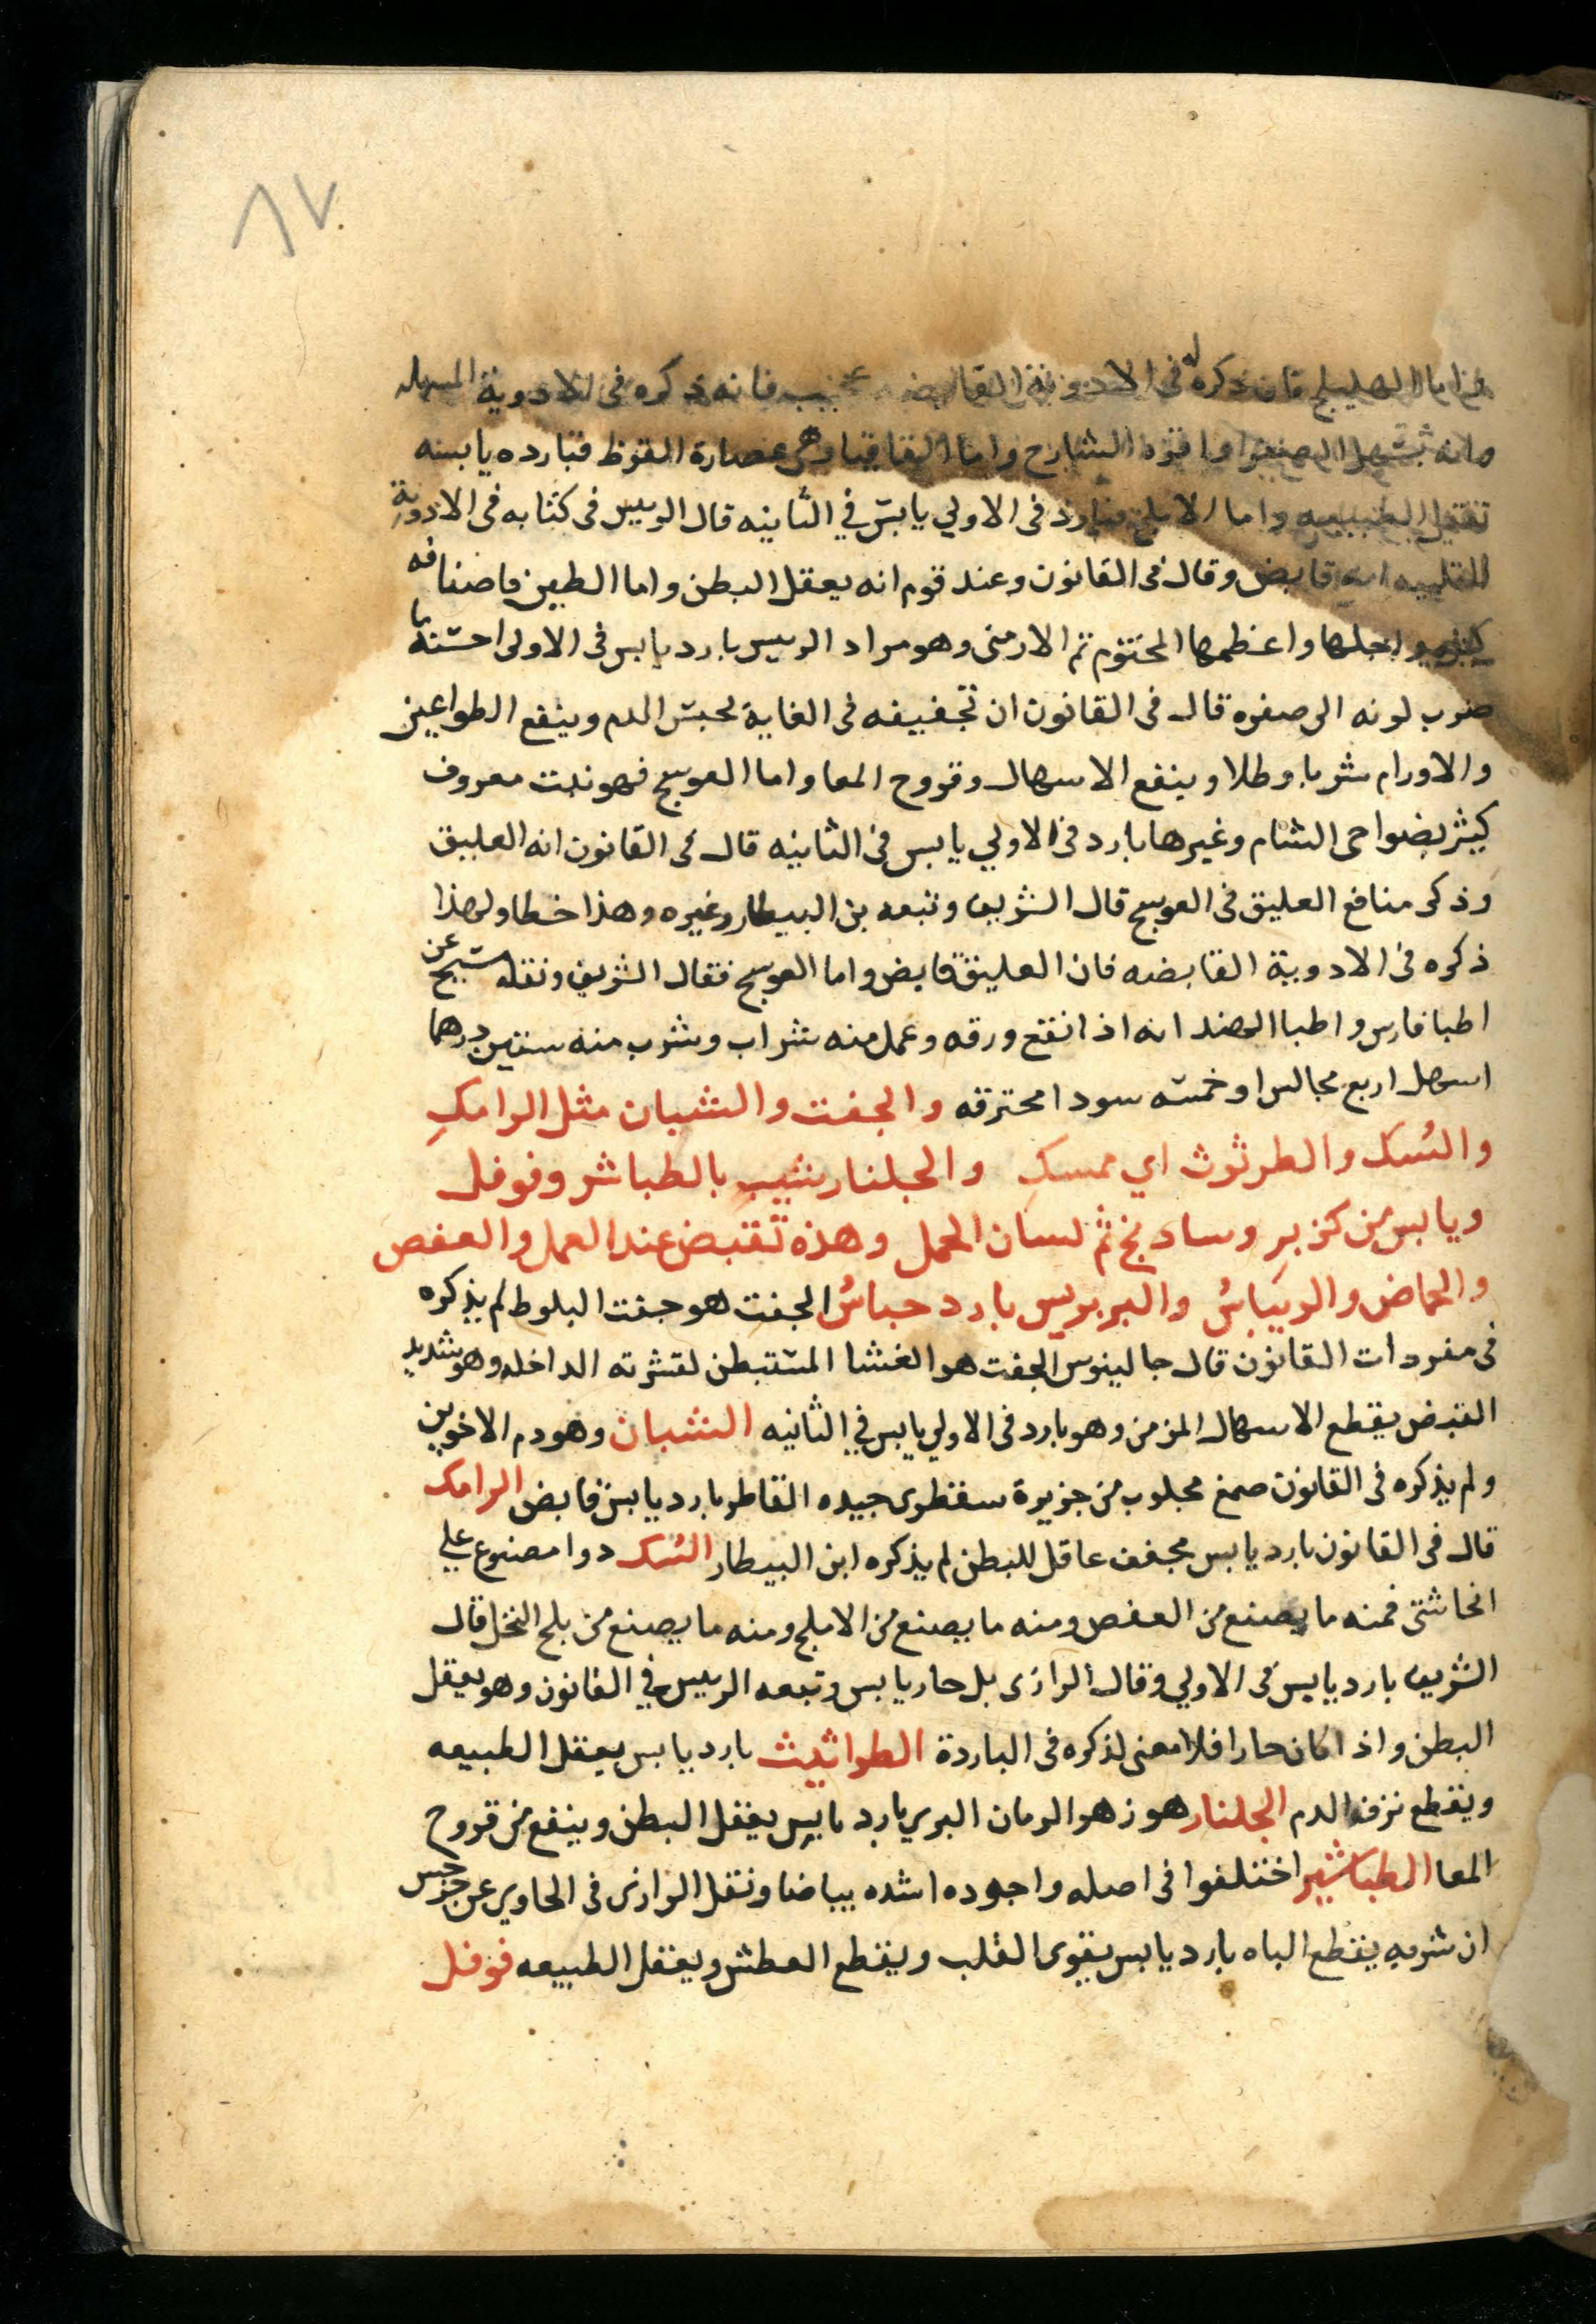 ٨٧
واما الهليلج فان ذكره له في الادوية القابضه عجيب فانه ذكره في الادوية المسهله
وانه تسهل الصفرا واقره الشارح واما القاقيا وهي عصارة القرظ فبارده يابسه
تعقل الطبيعه واما الاملج فبارد في الاولي يابس في الثانيه قال الرييس في كتابه في الادوية
القلبيه انه قابض وقال في القانون وعند قوم انه يعقل البطن واما الطين فاصنافه
كثيره اجلها واعظمها المختوم ثم الارمني وهو مراد الرييس بارد يابس في الاولي احسنه ما
ضرب لونه الي صفره قال في القانون ان تجفيفه في الغاية لحبس الدم وينفع الطواعين
والاورام شربا وطلا وينفع الاسهال وقروح المعا واما العوسج فهو نبت معروف
كيثر بضواحي الشام وغيرها بارد في الاولي يابس في الثانيه قال في القانون انه العليق
وذكر منافع العليق في العوسج قال الشريف وتبعه بن البيطار وغيره وهذا خطا ولهذا
ذكره في الادوية القابضه فان العليق قابض واما العوسج فقال الشريف ونقله مسيح عن
اطبا فارس واطبا الهند انه اذا نقع ورقه وعمل منه شراب وشرب منه ستين درهما
اسهل اربع مجالس او خمسه سودا محترقه والجفت والشيان مثل الرامك
والسك والطرثوث اي ممسك والجلنار ينيب بالطباشر وفوفل
ويابس من كزبر وسادنج ثم لسان الحمل وهذه تقبض عند العمل والعفص
والحماض والريباس والبربريس بارد حباس الجفت هو جفت البلوط لم يذكره
في مفردات القانون قال جالينوس الجفت هو الغشا المستبطن لقشرته الداخله وهو شديد
القبض يقطع الاسهال المزمن وهو بارد في الاولي يابس في الثانيه الشيان وهو دم الاخوين
ولم يذكره في القانون صمغ مجلوب من جزيرة سقطري جيده القاطر بارد يابس قابض الرامك
قال في القانون بارد يابس مجفف عاقل للبطن لم يذكره ابن البيطار السك دوا مصنوع علي
انحا شتي فمنه ما يصنع من العفص ومنه ما يصنع من الاملج ومنه ما يصنع من بلح النخل قال
الشريف بارد يابس في الاولي وقال الرازي بل حار يابس وتبعه الرييس في القانون وهو يعقل
البطن واذا كان حارا فلا معني لذكره في الباردة الطراثيث بارد يابس يعقل الطبيعه
ويقطع نزف الدم الجلنار هو زهر الرمان البري بارد يابس يعقل البطن وينفع من قروح
المعا الطباشير اختلفوا في اصله واجوده اشده بياضا ونقل الرازي في الحاوي عن
ان شربه يقطع الباه بارد يابس يقوي القلب ويقطع العطش ويعقل الطبيعه فوفل